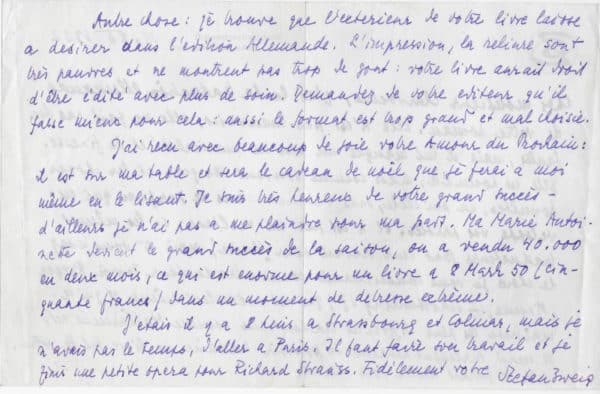 Autre chose: je trouve que l'exterieur de votre livre laisse
a desirer dans l'edition Allemande. L'impression, la reliure sont
très pauvres et ne montrent pas trop de gout: votre livre aurait droit
d'être édité avec plus de soin. Demandez de votre editeur qu'il
fasse mieux pour cela: aussi le format est trop grand et mal choisie.
J'ai reçu avec beaucoup de joie votre Amour du Prochain:
il est sur ma table et sera le cadeau de noël que je ferai a moi
même en le lisant. Je suis très heureux de votre grand succès -
d'ailleurs je n'ai pas a me plaindre pour ma part. Ma Marie Antoi-
nette devient le grand succès de la saison, on a vendu 40.000
en deux mois, ce qui est enorme pour un livre a 8 Mark 50 (cin-
quante francs) dans un moment de detresse extrême.
J'étais il y a a Strasbourg et Colmar, mais je
n'avais pas le temps, d'aller a Paris. Il faut faire son travail et je
finis une petite opera pour Richard Strauss. Fidèlement votre Stefan Zweig